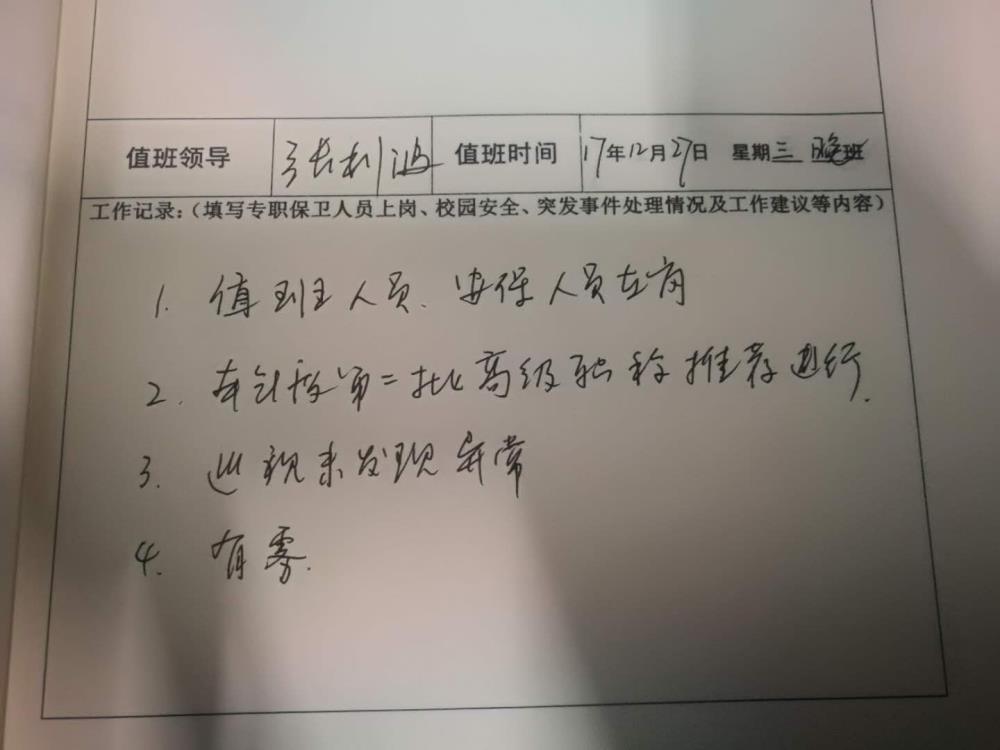 值班领导 张利鸿 值班时间 17年12月27日 星期三 晚班
工作记录:(填写专职保卫人员上岗、校园安全、突发事件处理情况及工作建议等内容)
1. 值班人员、安保人员在岗
2. 第二批高级职称推荐进行.
3. 巡视未发现异常
4. 有雾.